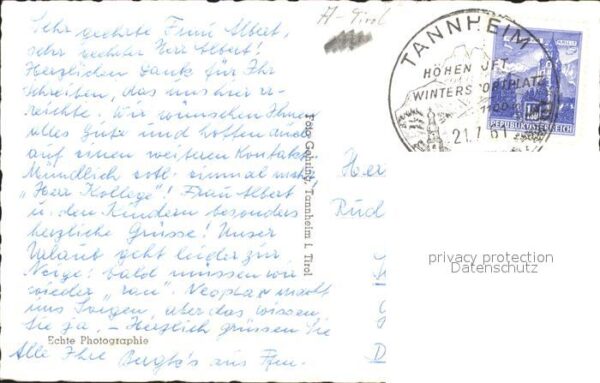 Sehr geehrte Frau Albert,
sehr geehrter Herr Albert!
Herzlichen Dank für Ihr
Schreiben, das uns hier er-
reichte. Wir wünschen Ihnen
alles Gute und hoffen auch
auf einen weiteren Kontakt.
Mündlich evtl. einmal mehr
"Herr Kollege"! Frau Albert
u. den Kindern besonders
herzliche Grüsse! Unser
Urlaub geht leider zur
Neige: bald müssen wir
wieder "ran". macht
uns Sorgen, aber das wissen
Sie ja. – Herzlich grüssen Sie
Alle Ihre aus
Echte Photographie
Foto Gehring, Tannheim i. Tirol
A-Tirol
TANNHEIM
HÖHENLUFT
WINTERSPORTPLATZ
21.7.61
REPUBLIK ÖSTERREICH
Her
Rud
privacy protection
Datenschutz
D